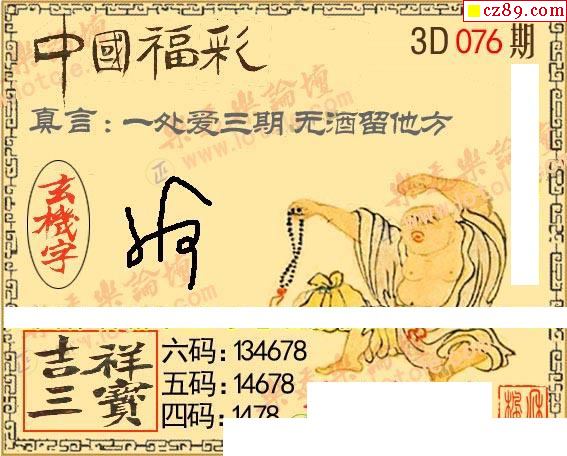 cz89.com
中國福彩
3D 076 期
真言：一处爱三期 无酒留他方
玄機字
吉祥三寳
六码:134678
五码:14678
四码:1478